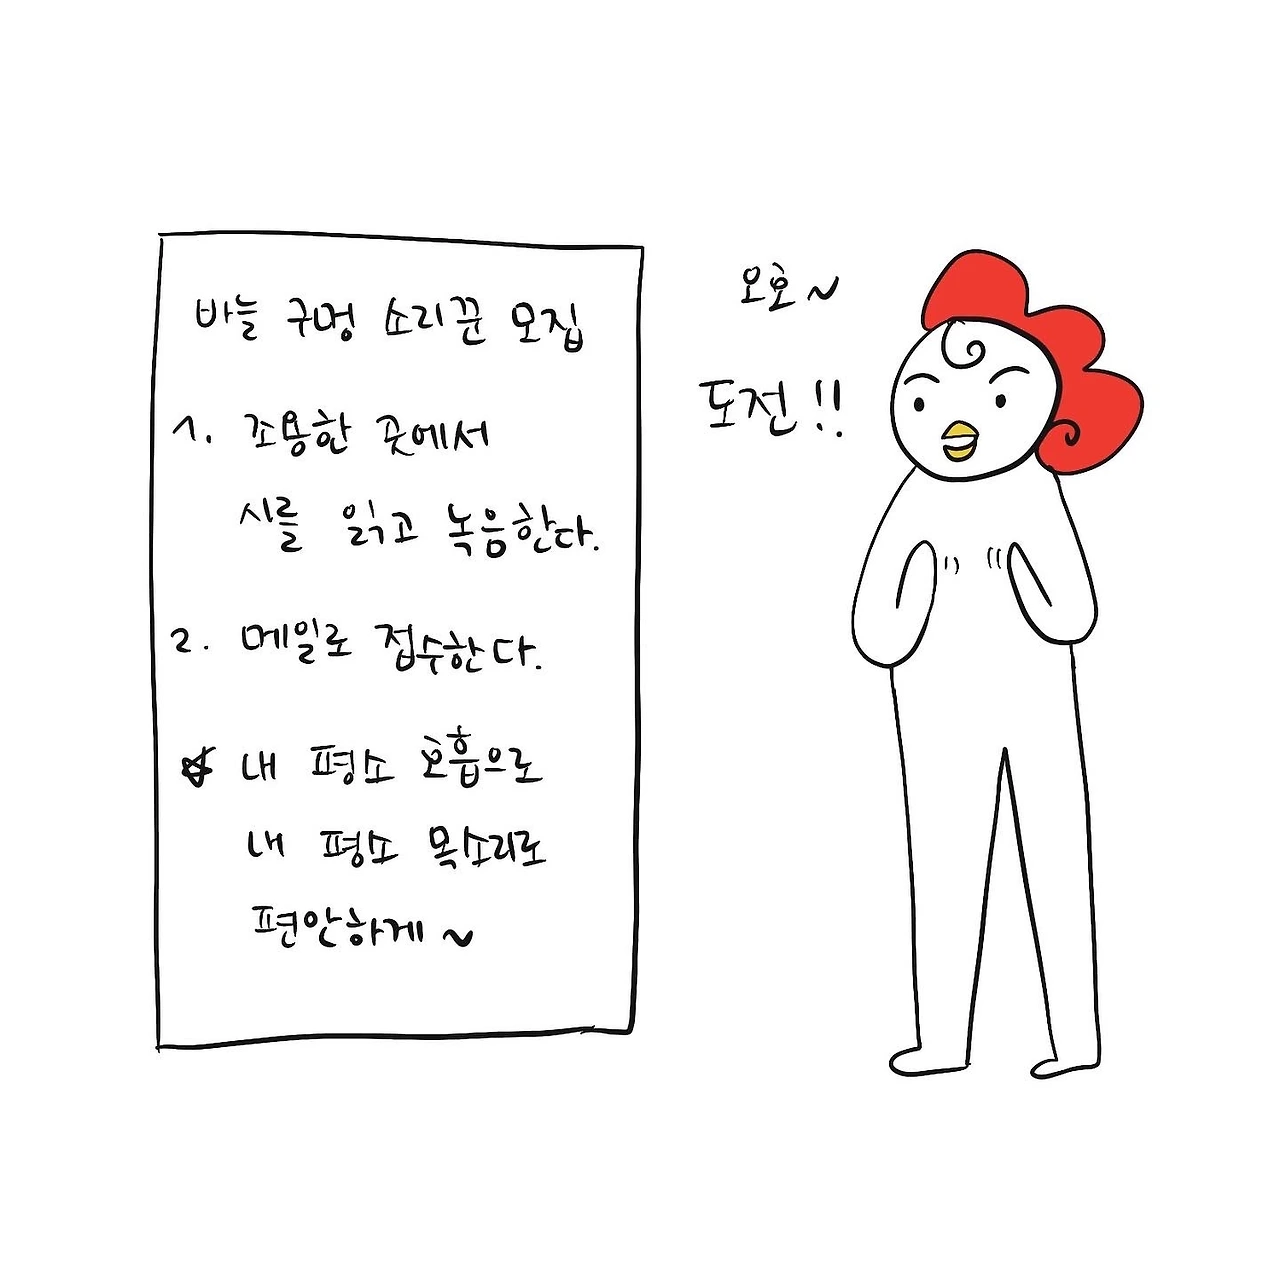 바늘 구멍 소리꾼 모집
1. 조용한 곳에서
시를 읽고 녹음한다.
2. 메일로 접수한다.
☆ 내 평소 호흡으로
내 평소 목소리로
편안하게~
오호~
도전!!